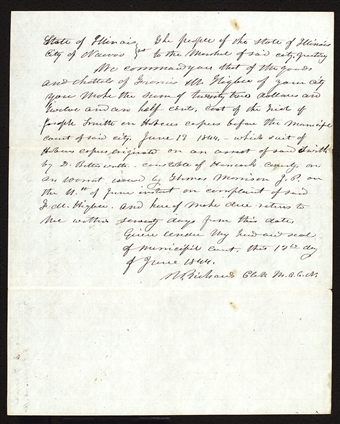 State of Illinois } ss The people of the State of Illinois
City of Nauvoo to the Marshal of said city, greeting
We command you that of the goods
and chattels of Francis M. Higbee of your city
you make the sum of Twenty two dollars and
twelve and an half cents, cost of the trial of
Joseph Smith on Habeas corpus before the Municipal
court of said city. June 12 1844. which suit of
Habeas corpus originated on an arrest of said Smith
by D. Bettisworth. constable of Hancock county. on
an warrant issued by Thomas Morrison J. P. on
the 11th of June instant on complaint of said
F. M. Higbee. and hereof make due return to
me within seventy days from this date.
Given under my hand and seal
of municipal court, this 12th day
of June 1844.
W. Richards Clerk M. C. C. N.